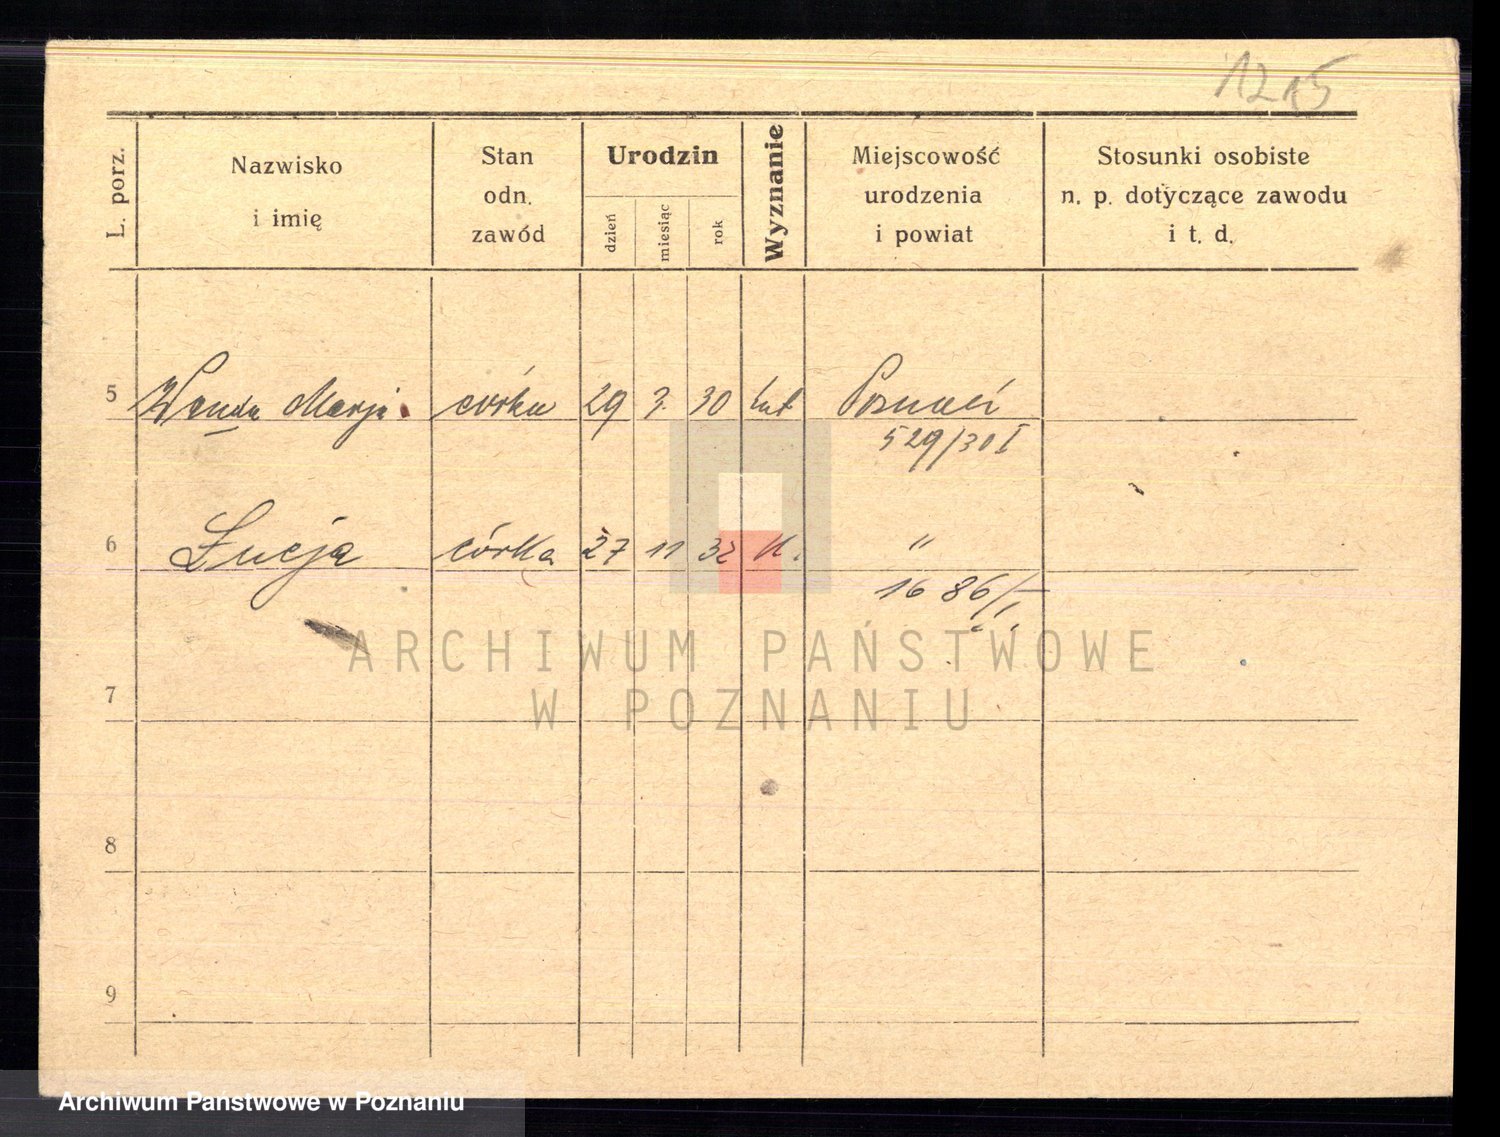 1215
L. porz.
Nazwisko
i imię
Stan
odn.
zawód
Urodzin
dzień
miesiąc
rok
Wyznanie
Miejscowość
urodzenia
i powiat
Stosunki osobiste
n. p. dotyczące zawodu
i t. d.
5 Wanda Marja córka 29 3. 30 kat Poznań
529/30 I
6 Łucja córka 27 11 32 K. "
1686/I
7
8
9
ARCHIWUM PAŃSTWOWE
W POZNANIU
Archiwum Państwowe w Poznaniu